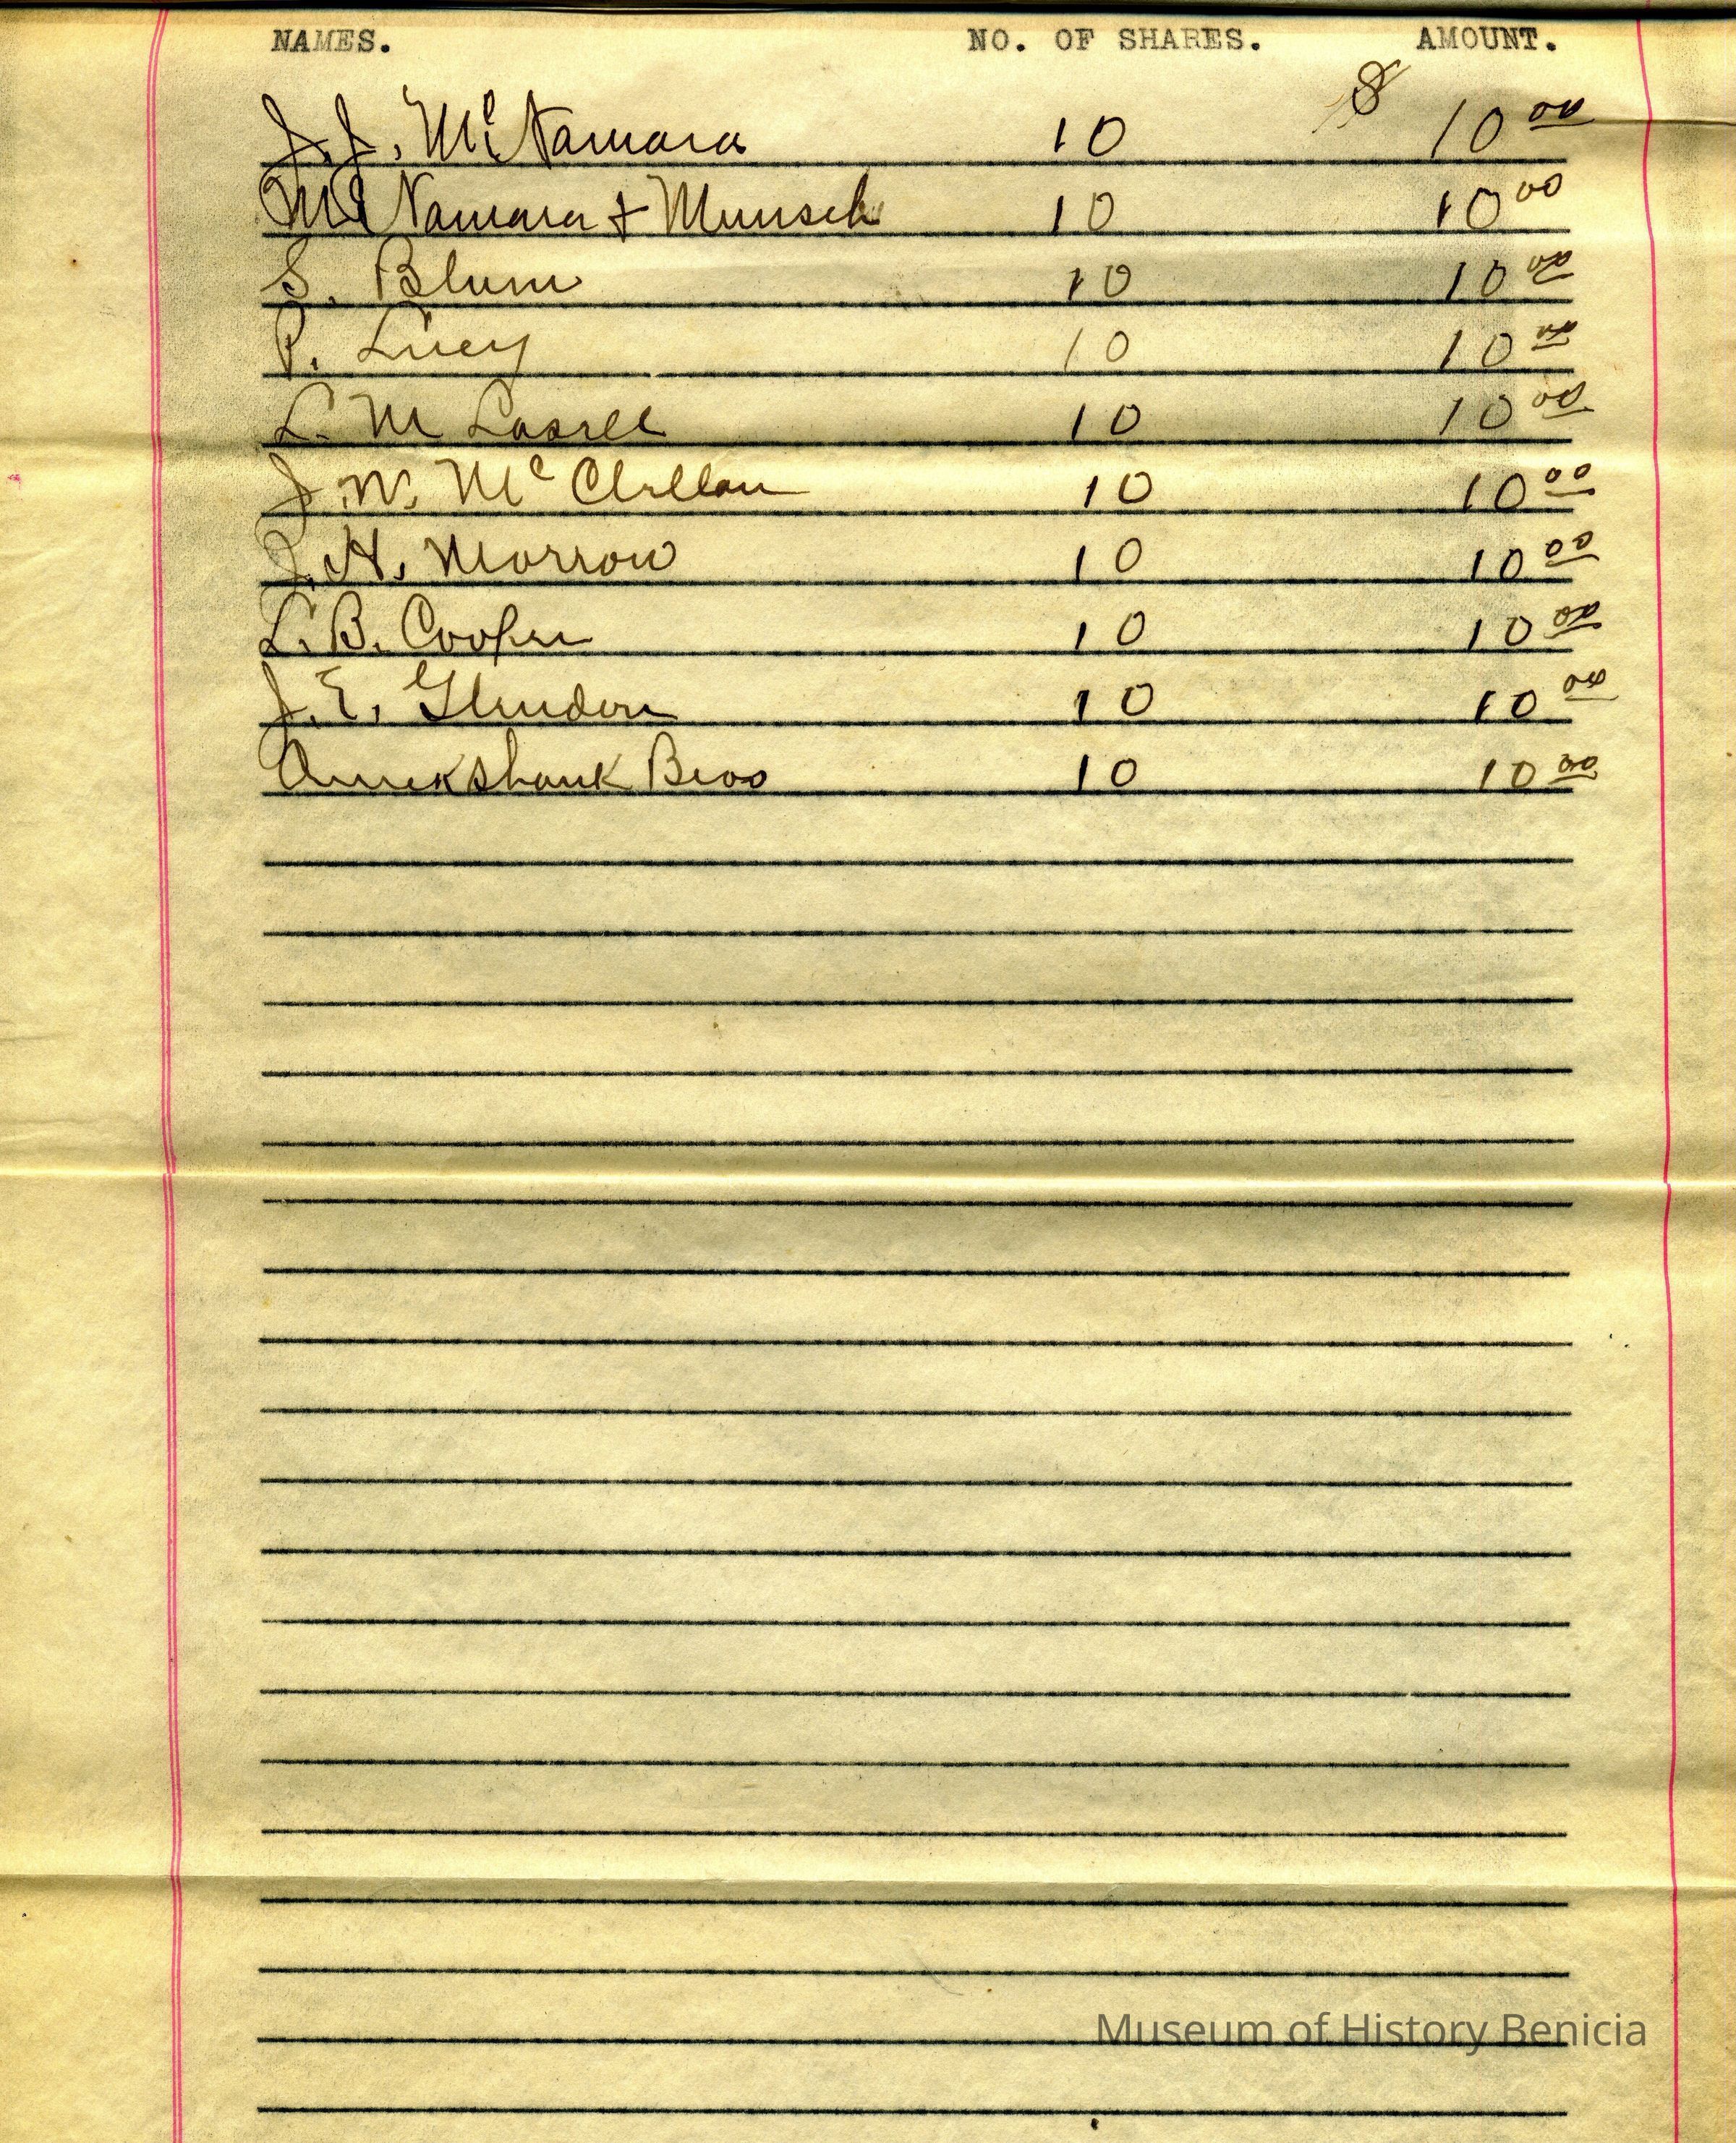 NAMES. NO. OF SHARES. AMOUNT.
J. J. McNamara 10 $ 10 00
McNamara & Munsch 10 10 00
S. Blum 10 10 00
P. Lucy 10 10 00
L. M 10 10 00
J. W. McClellan 10 10 00
J. H. Morrow 10 10 00
L. B. Cooper 10 10 00
J. E. Glendon 10 10 00
Bros 10 10 00
Museum of History Benicia